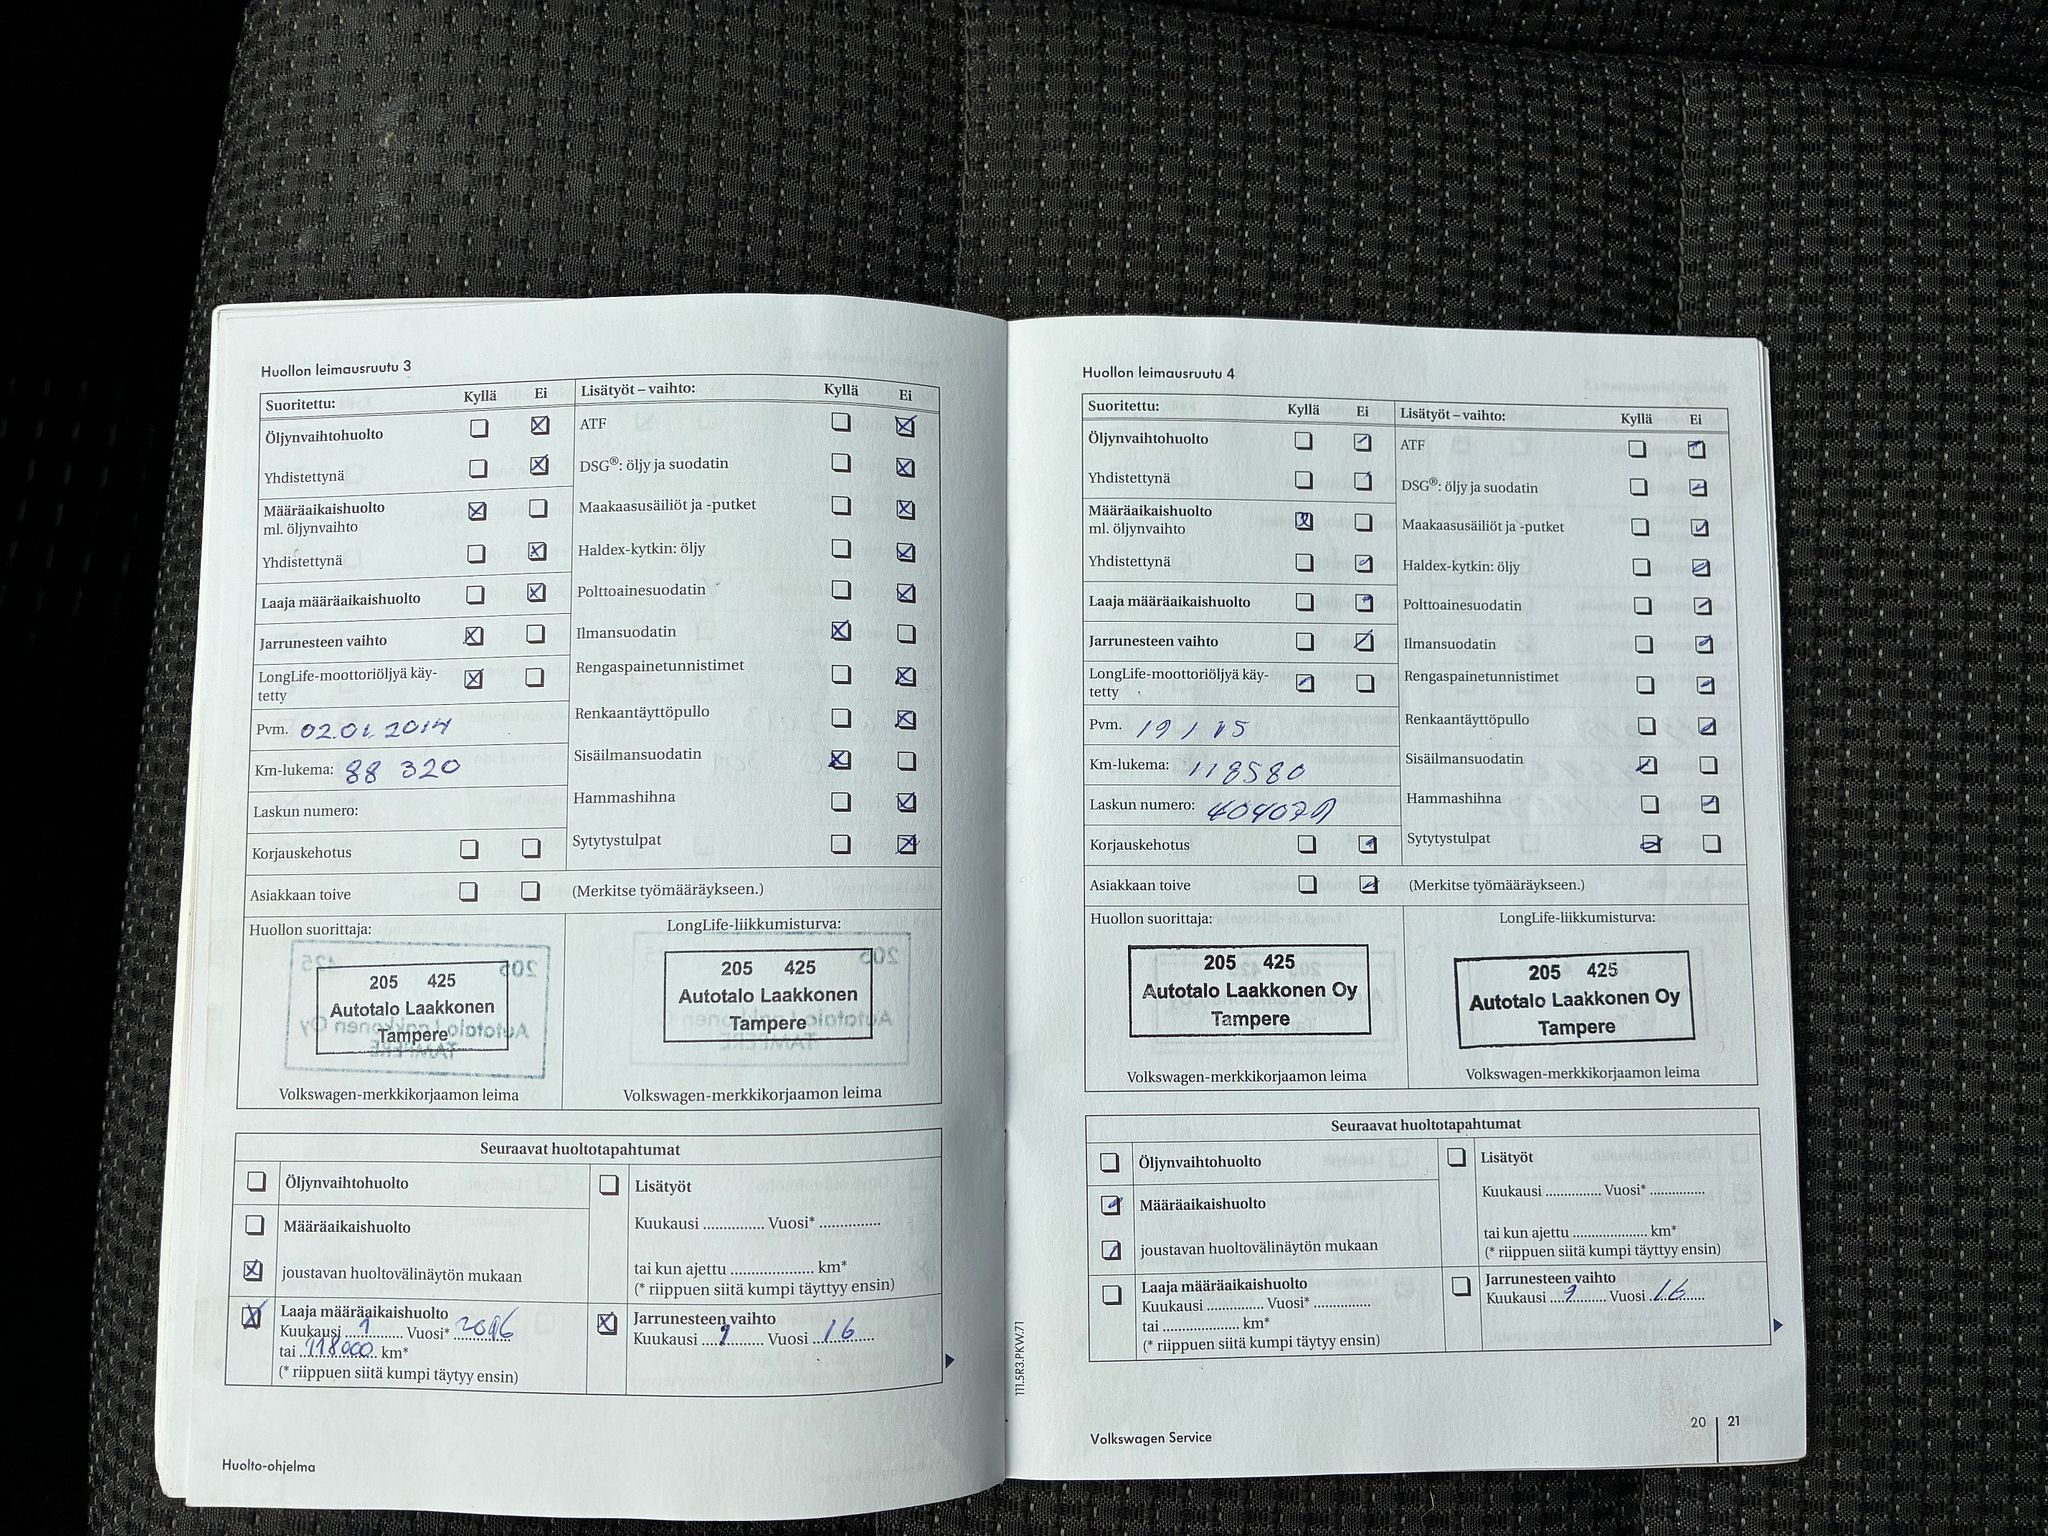 Huollon leimausruutu 3
Suoritettu: Kyllä Ei
Öljynvaihtohuolto
Yhdistettynä
Määräaikaishuolto
ml. öljynvaihto
Yhdistettynä
Laaja määräaikaishuolto
Jarrunesteen vaihto
LongLife-moottoriöljyä käy-
tetty
Pvm. 02.01.2014
Km-lukema: 88 320
Laskun numero:
Korjauskehotus
Asiakkaan toive
Lisätyöt – vaihto: Kyllä Ei
ATF
DSG®: öljy ja suodatin
Maakaasusäiliöt ja -putket
Haldex-kytkin: öljy
Polttoainesuodatin
Ilmansuodatin
Rengaspainetunnistimet
Renkaantäyttöpullo
Sisäilmansuodatin
Hammashihna
Sytytystulpat
(Merkitse työmääräykseen.)
Huollon suorittaja:
205 425
Autotalo Laakkonen
Tampere
Volkswagen-merkkikorjaamon leima
LongLife-liikkumisturva:
205 425
Autotalo Laakkonen
Tampere
Volkswagen-merkkikorjaamon leima
Seuraavat huoltotapahtumat
Öljynvaihtohuolto
Määräaikaishuolto
joustavan huoltovälinäytön mukaan
Laaja määräaikaishuolto
Kuukausi 1 Vuosi* 2016
tai 118000 km*
(* riippuen siitä kumpi täytyy ensin)
Lisätyöt
Kuukausi ............... Vuosi* ...............
tai kun ajettu .................... km*
(* riippuen siitä kumpi täyttyy ensin)
Jarrunesteen vaihto
Kuukausi 1 Vuosi 16
Huolto-ohjelma
111.5R3.PKW.71
Huollon leimausruutu 4
Suoritettu: Kyllä Ei
Öljynvaihtohuolto
Yhdistettynä
Määräaikaishuolto
ml. öljynvaihto
Yhdistettynä
Laaja määräaikaishuolto
Jarrunesteen vaihto
LongLife-moottoriöljyä käy-
tetty
Pvm. 19 1 15
Km-lukema: 118580
Laskun numero:
Korjauskehotus
Asiakkaan toive
Lisätyöt – vaihto: Kyllä Ei
ATF
DSG®: öljy ja suodatin
Maakaasusäiliöt ja -putket
Haldex-kytkin: öljy
Polttoainesuodatin
Ilmansuodatin
Rengaspainetunnistimet
Renkaantäyttöpullo
Sisäilmansuodatin
Hammashihna
Sytytystulpat
(Merkitse työmääräykseen.)
Huollon suorittaja:
205 425
Autotalo Laakkonen Oy
Tampere
Volkswagen-merkkikorjaamon leima
LongLife-liikkumisturva:
205 425
Autotalo Laakkonen Oy
Tampere
Volkswagen-merkkikorjaamon leima
Seuraavat huoltotapahtumat
Öljynvaihtohuolto
Määräaikaishuolto
joustavan huoltovälinäytön mukaan
Laaja määräaikaishuolto
Kuukausi ............... Vuosi* ...............
tai .................... km*
(* riippuen siitä kumpi täytyy ensin)
Lisätyöt
Kuukausi ............... Vuosi* ...............
tai kun ajettu .................... km*
(* riippuen siitä kumpi täyttyy ensin)
Jarrunesteen vaihto
Kuukausi 1 Vuosi 16
Volkswagen Service
20 21